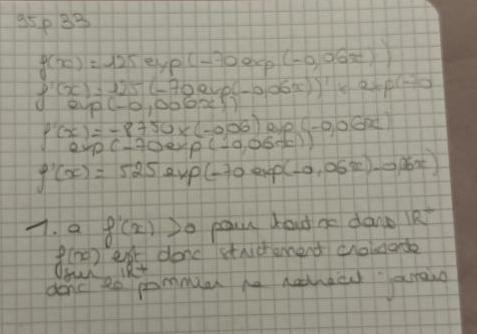 95 p 33
f(x) = 125 exp(-70 exp(-0,06x))
f'(x) = 125 (-70 exp(-0,06x))' x exp(-70
exp(-0,006x))
f'(x) = -8750 x (-0,06) exp(-0,06x)
exp(-70 exp(-0,06x))
f'(x) = 525 exp(-70 exp(-0,06x) -0,06x)
1. a f'(x) > 0 pour tout x dans IR+
f(x) est donc strictement croissante
sur IR+
donc le pommier ne jamais